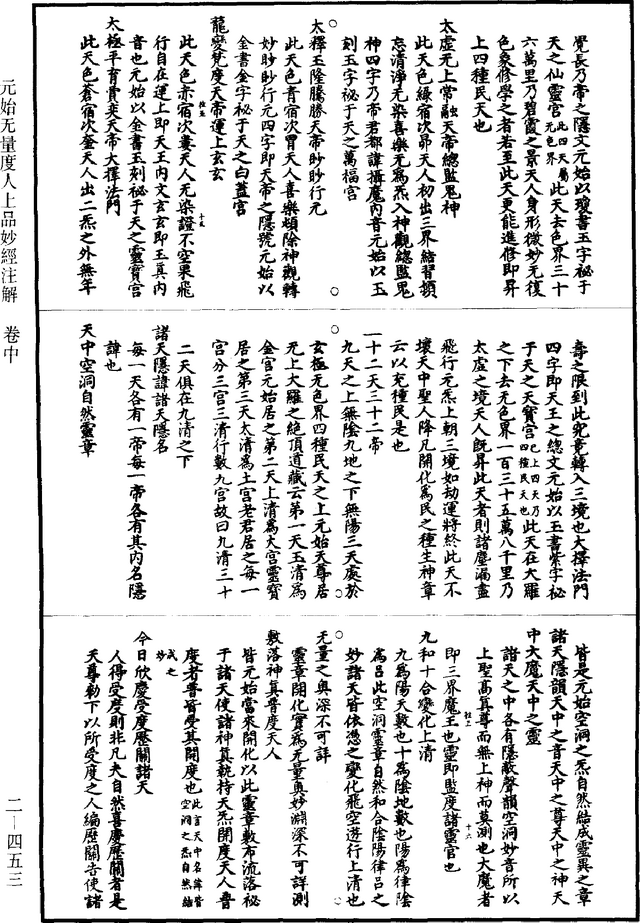 覺長乃帝之隱文元始以瓊書玉字祕于
天之仙靈宮此四天屬无色界此天去色界三十
六萬里乃碧霞之景天人身形微妙无復
色象修學之者若至此天更能進修即昇
上四種民天也
太虛无上常融天帝總監鬼神
此天色綠宿次昴天人初出三界結習頓
忘清淨无染喜樂无爲炁入神觀總監鬼
神四字乃帝君都諱攝魔內音元始以玉
刻玉字祕于天之萬福宮
太擇玉隆騰勝天帝眇眇行元
此天色青宿次胃天人喜樂頻除神觀轉
妙眇眇行元四字即天帝之隱號元始以
金書金字祕于天之白蓋宮
龍變梵度天帝運上玄玄
此天色赤宿次婁天人无染證不空果飛
行自在運上即天王內文玄玄即玉真內
音也元始以金書玉刻祕于天之靈寶宮
太極平育賈奕天帝大擇法門
此天色蒼宿次奎天人出二炁之外無年
壽之限到此究竟轉入三境也大擇法門
四字即天王之總文元始以玉書紫字祕
于天之天寶宮已上四天乃四種民天也此天在大羅
之下去无色界一百三十五萬八千里乃
太虛之境天人既昇此天者則諸塵漏盡
飛行元炁上朝三境如劫運將終此天不
壞天中聖人降凡開化爲民之種生神章
云以充種民是也
三十二天三十二帝
九天之上無陰九地之下無陽三天處於
玄極无色界四種民天之上元始天尊居
无上大羅之絕頂道藏云第一天玉清爲
金宮元始居之第二天上清爲大宮靈寶
居之第三天太清爲土宮老君居之每一
宮分三宮三清行數九宮故曰九清三十
二天俱在九清之下
諸天隱諱諸天隱名
每一天各有一帝每一帝各有其內名隱
諱也
天中空洞自然靈章
皆是元始空洞之炁自然結成靈異之章
諸天隱韻天中之音天中之尊天中之神天
中大魔天中之靈
諸天之中各有隱祕聲韻空洞妙音所以
上聖高真尊而無上神而莫測也大魔者
即三界魔王也靈即監度諸靈官也
九和十合變化上清
九爲陽天數也十爲陰地數也陽爲律陰
爲呂此空洞靈章自然和合陰陽律呂之
妙諸天皆依憑之變化飛空遊行上清也
无量之奧深不可詳
靈章開化實爲无量奧妙淵深不可詳測
敷落神真普度天人
皆元始當來開化以此靈章敷布流落祕
于諸天使諸神真執持天炁開度天人普
度者普皆受其開度也此言天中名諱皆空洞之炁自然結成之妙
今日欣慶受度歷關諸天
人得受度則非凡夫自然喜慶歷關者是
天尊勑下以所受度之人編歷關告使諸
元始无量度人上品妙經注解 卷中
二—四五三